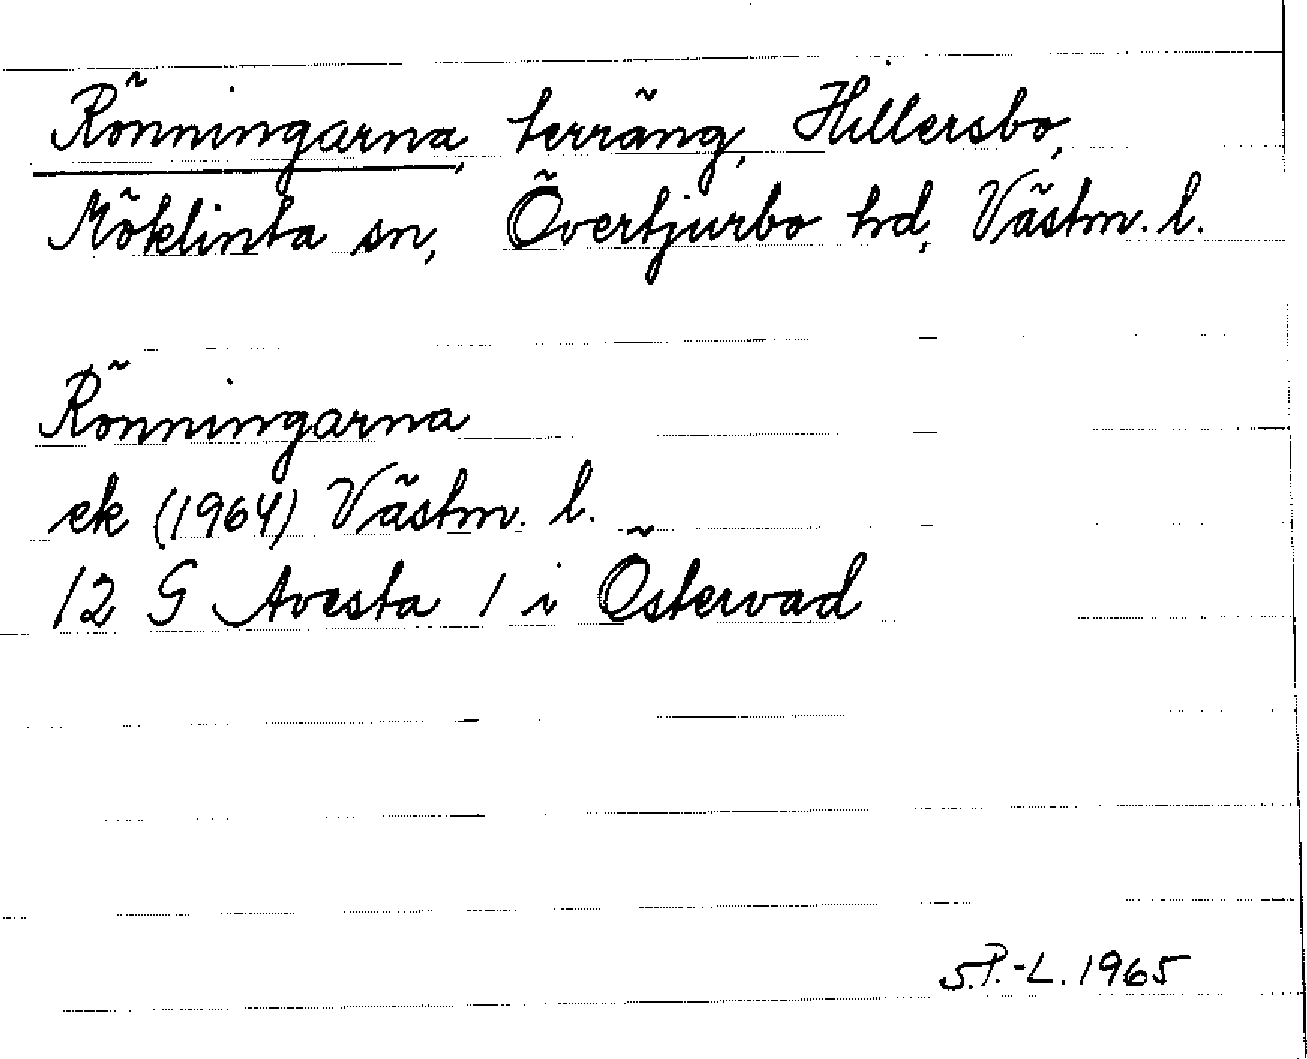 Rönningarna, terräng, Hillersbo,
Möklinta sn, Övertjurbo hd, Västm. l.
Rönningarna
ek (1964) Västm. l.
12 G Avesta 1 i Östervad
S.P.-L. 1965